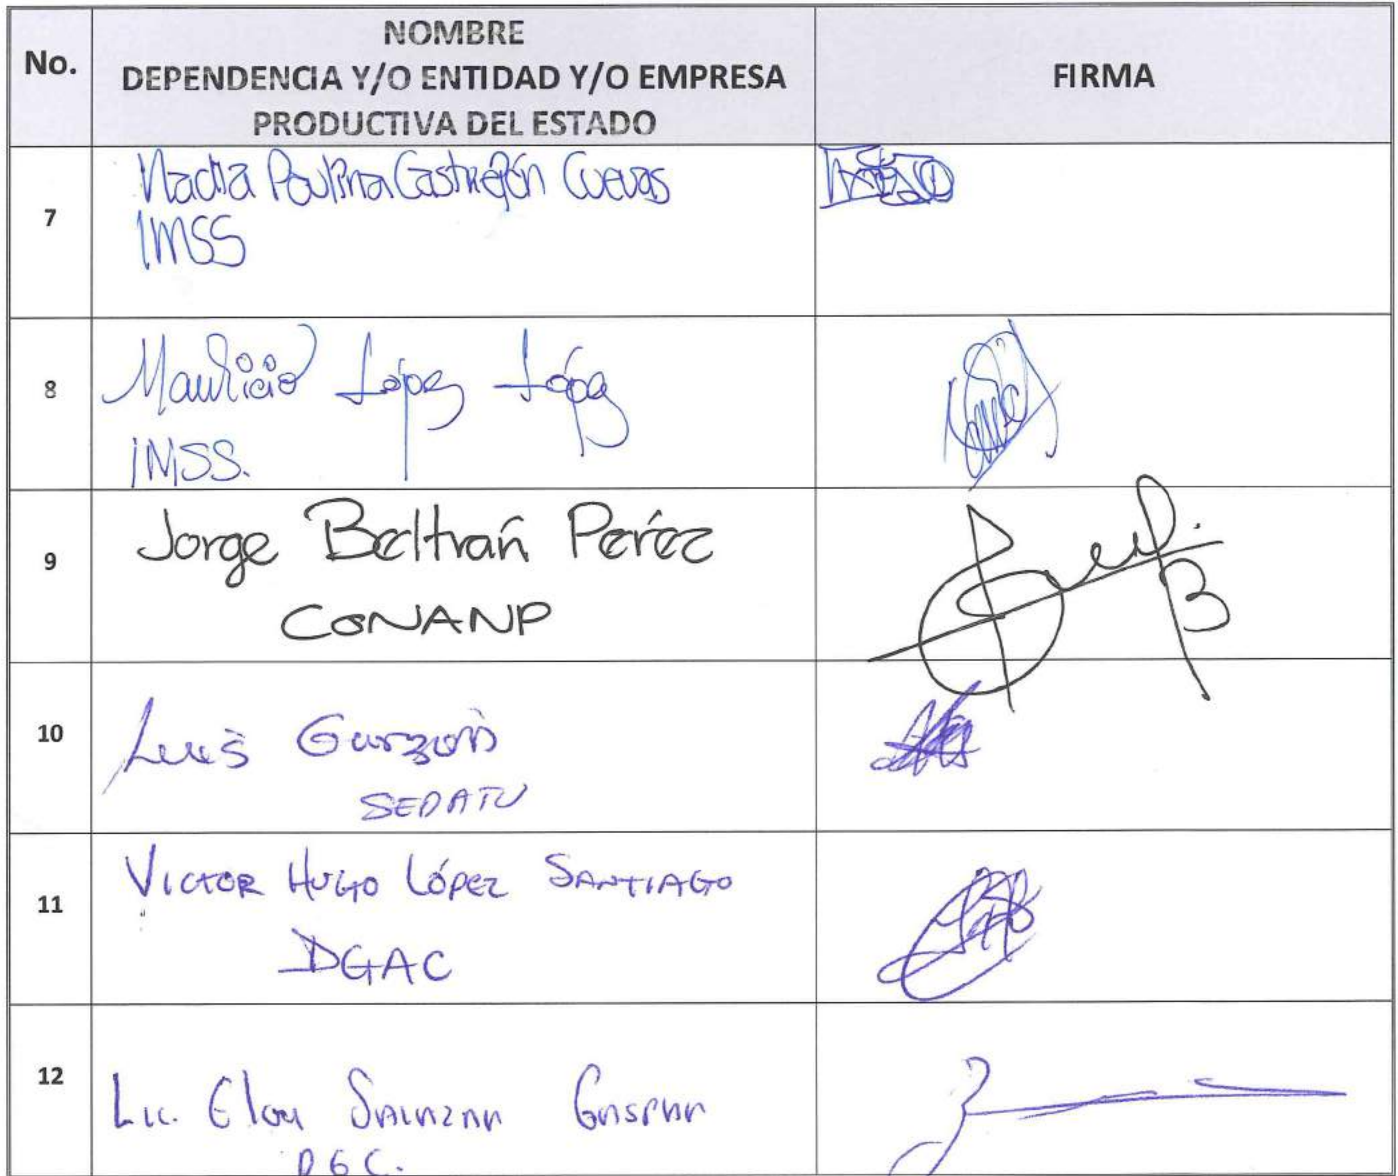 No.
NOMBRE
DEPENDENCIA Y/O ENTIDAD Y/O EMPRESA
PRODUCTIVA DEL ESTADO
FIRMA
7
Nadia Paulina Castrejón Cuevas
IMSS
8
Mauricio López López
IMSS.
9
Jorge Beltrán Peréz
CONANP
10
Luis Garzón
SEDATU
11
VICTOR HUGO LÓPEZ SANTIAGO
DGAC
12
Lic. Eloy SALAZAR GASPAR
DGC.